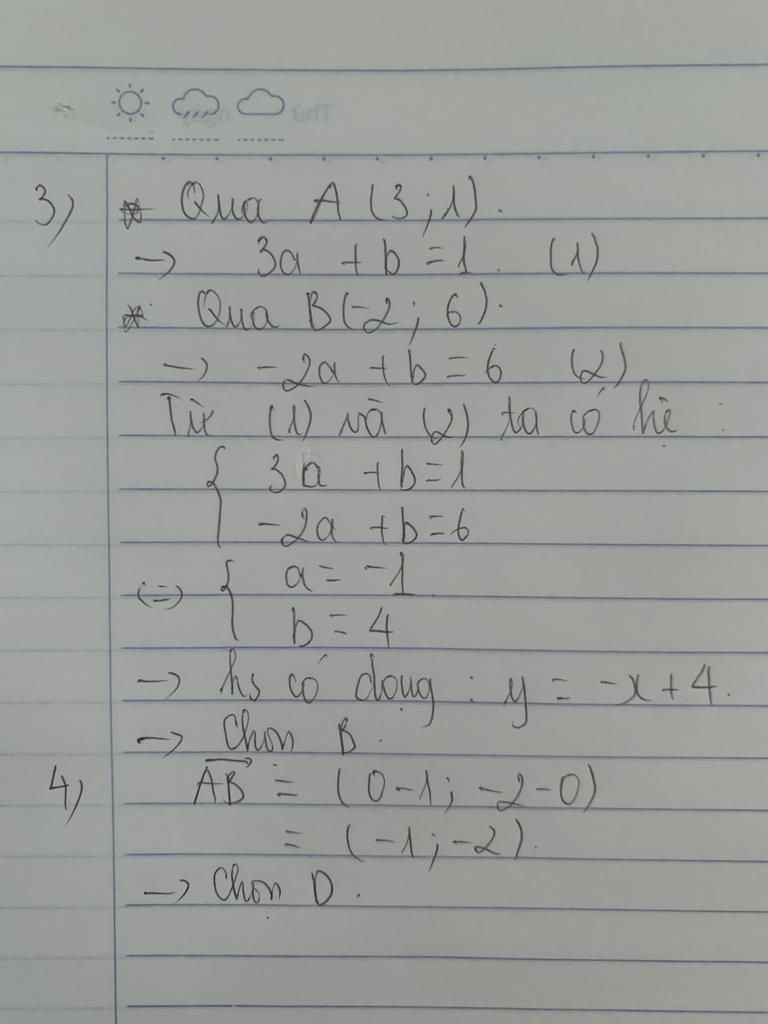 Thứ ngày
3) * Qua A (3 ; 1).
→ 3a + b = 1. (1)
* Qua B(-2 ; 6).
→ -2a + b = 6 (2)
Từ (1) và (2) ta có hệ :
{ 3a + b = 1
-2a + b = 6
(=) { a = -1
b = 4
→ hs có dạng : y = -x + 4.
→ Chọn B.
4) \overrightarrow{AB} = (0-1; -2-0)
= (-1; -2).
→ Chọn D.